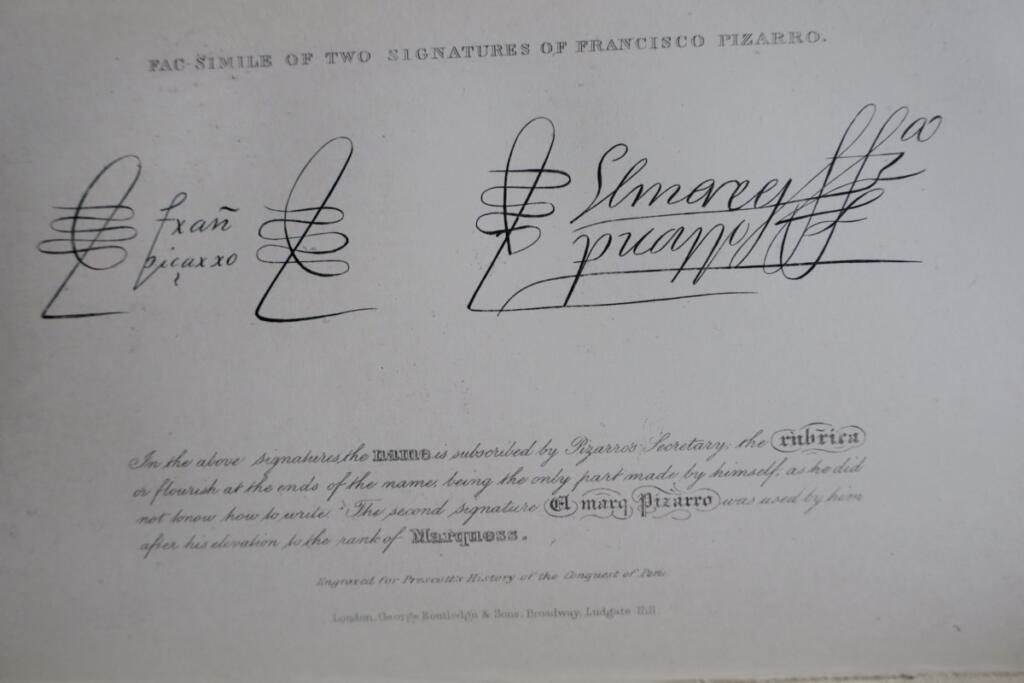 FAC-SIMILE OF TWO SIGNATURES OF FRANCISCO PIZARRO.
frañ
piçarro
El marq
piçarro
In the above signatures, the name is subscribed by Pizarro's Secretary; the rúbrica
or flourish at the ends of the name, being the only part made by himself; as he did
not know how to write. The second signature El marq Pizarro was used by him
after his elevation to the rank of Marquess.
Engraved for Prescott's History of the Conquest of Peru.
London, George Routledge & Sons, Broadway, Ludgate Hill.